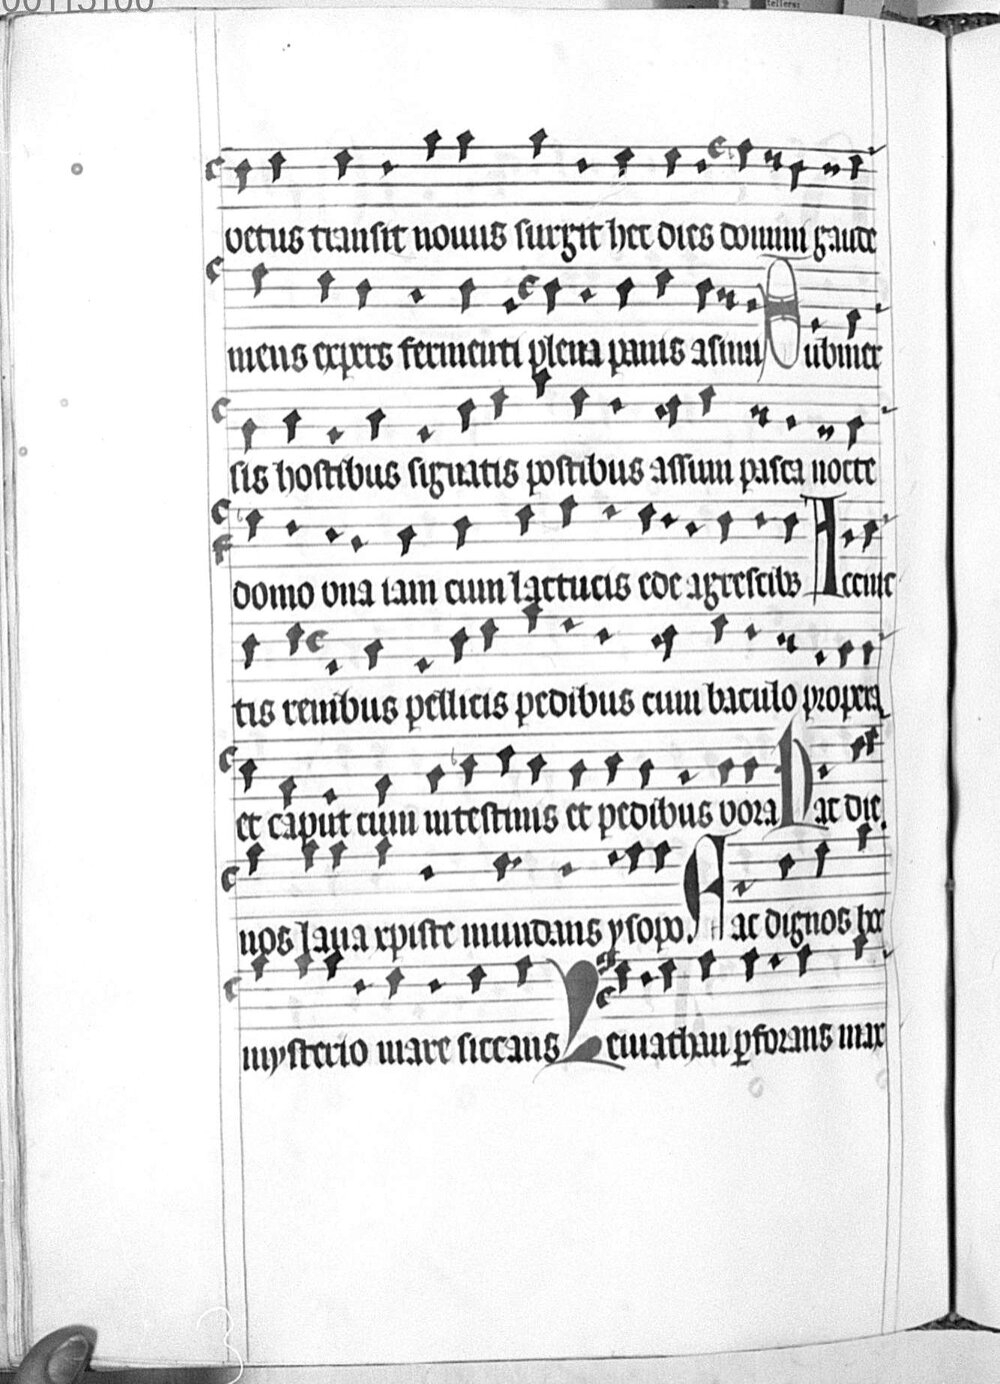 00113100
vetus transit nouus surgit hec dies domini gaude
mens expers fermenti plena panis asimi Rubmer
sis hostibus signatis postibus assum pasca nocte
domo vna iam cum lactucis ede agrestibꝫ Accinc
tis renibus pellicis pedibus cum baculo propera
et caput cum intestinis et pedibus vora Hac die
nos laua xpiste mundans ysopo. Fac dignos hoc
mysterio mare siccans Leuiathan ꝑforans max